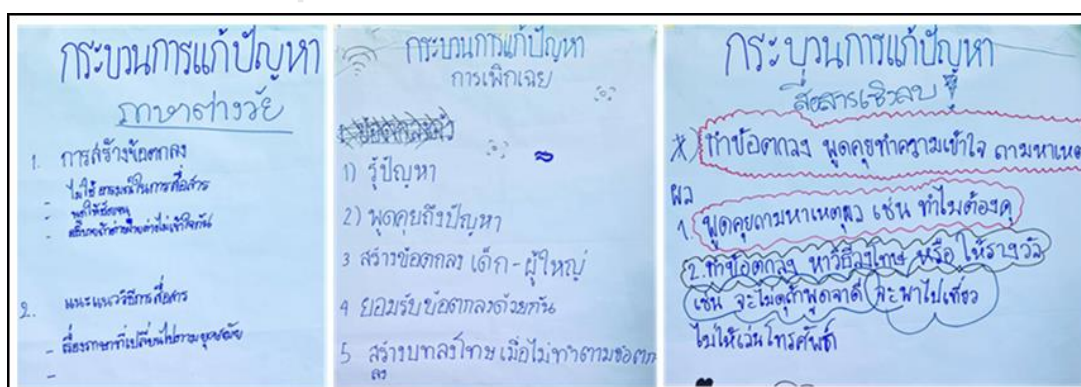 กระบวนการแก้ปัญหา
ภาษาต่างวัย
1. การสร้างข้อตกลง
- ไม่ใช้อารมณ์ในการสื่อสาร
- พูดให้ชัดเจน
- อธิบายถ้าต่างฝ่ายต่างไม่เข้าใจกัน
2. แนะแนววิธีการสื่อสาร
- เรื่องภาษาที่เปลี่ยนไปตามยุคสมัย
-
กระบวนการแก้ปัญหา
การเพิกเฉย
1) รู้ปัญหา
2) พูดคุยถึงปัญหา
3 สร้างข้อตกลง เด็ก - ผู้ใหญ่
4 ยอมรับข้อตกลงด้วยกัน
5 สร้างบทลงโทษ เมื่อไม่ทำตามข้อตก
ลง
กระบวนการแก้ปัญหา
สื่อสารเชิงลบ
*) ทำข้อตกลง พูดคุยทำความเข้าใจ ถามหาเหตุ
ผล
1. พูดคุยถามหาเหตุผล เช่น ทำไมต้องดุ
2. ทำข้อตกลง หาวิธีลงโทษ หรือ ให้รางวัล
เช่น จะไม่ดุถ้าพูดจาดี จะพาไปเที่ยว
ไม่ให้เล่นโทรศัพท์